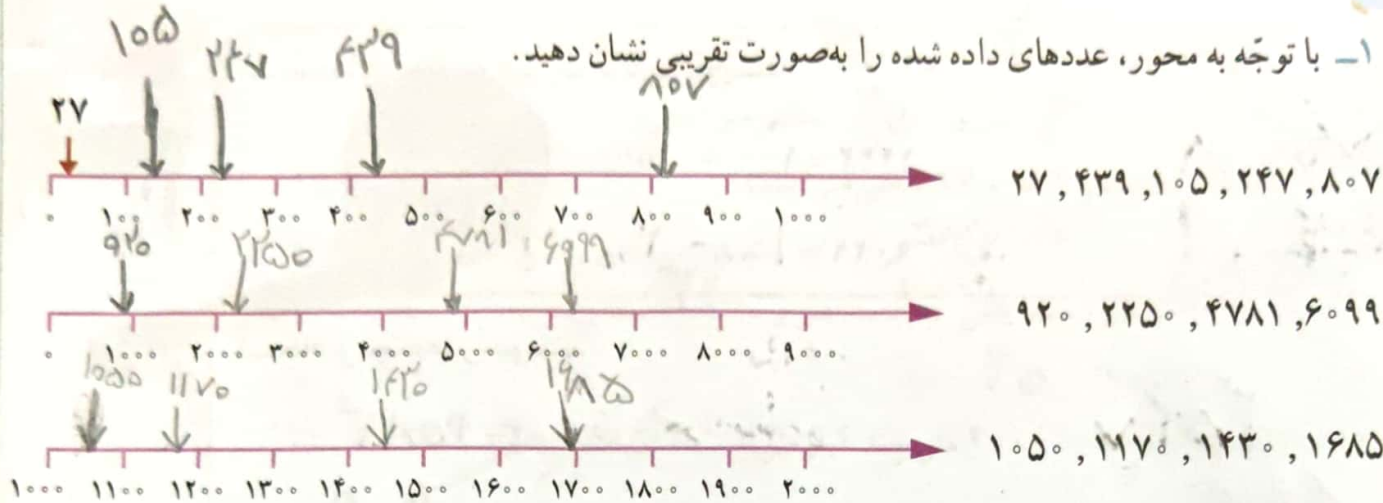 ۱ــ با توجّه به محور، عددهای داده شده را به‌صورت تقریبی نشان دهید.
۱۰۵ ۲۴۷ ۴۳۹ ۸۰۷
۲۷
۲۷ , ۴۳۹ , ۱۰۵ , ۲۴۷ , ۸۰۷
۰ ۱۰۰ ۲۰۰ ۳۰۰ ۴۰۰ ۵۰۰ ۶۰۰ ۷۰۰ ۸۰۰ ۹۰۰ ۱۰۰۰
۹۲۰ ۲۲۵۰ ۴۷۸۱ ۶۰۹۹
۹۲۰ , ۲۲۵۰ , ۴۷۸۱ , ۶۰۹۹
۰ ۱۰۰۰ ۲۰۰۰ ۳۰۰۰ ۴۰۰۰ ۵۰۰۰ ۶۰۰۰ ۷۰۰۰ ۸۰۰۰ ۹۰۰۰
۱۰۵۰ ۱۱۷۰ ۱۴۳۰ ۱۶۸۵
۱۰۵۰ , ۱۱۷۰ , ۱۴۳۰ , ۱۶۸۵
۱۰۰۰ ۱۱۰۰ ۱۲۰۰ ۱۳۰۰ ۱۴۰۰ ۱۵۰۰ ۱۶۰۰ ۱۷۰۰ ۱۸۰۰ ۱۹۰۰ ۲۰۰۰